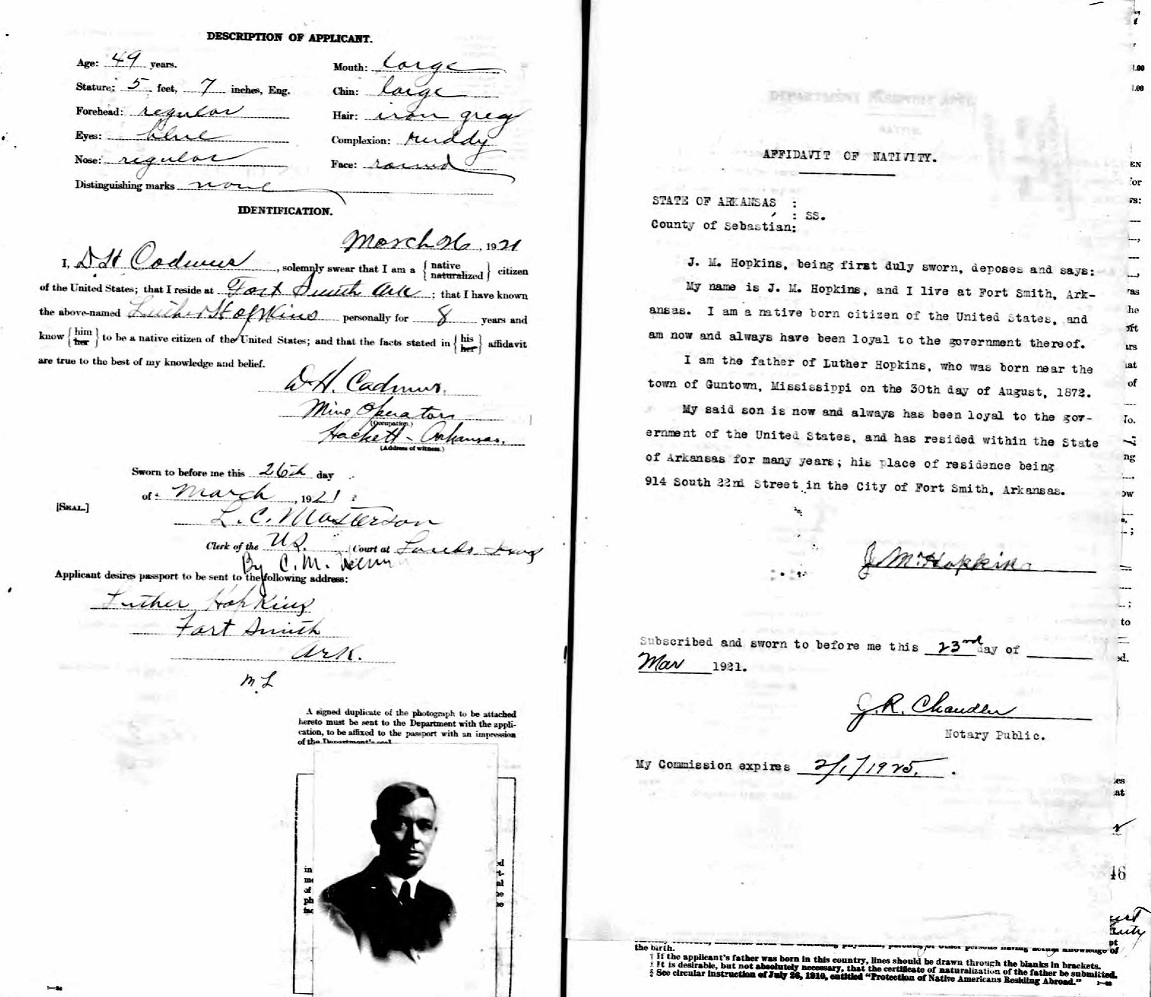 DESCRIPTION OF APPLICANT.
Age: 49 years.
Stature: 5 feet, 7 inches, Eng.
Forehead: regular
Eyes: blue
Nose: regular
Mouth: large
Chin: large
Hair: iron grey
Complexion: ruddy
Face: round
Distinguishing marks none
IDENTIFICATION.
March 26, 1921
I, D H Cadmus, solemnly swear that I am a {native naturalized} citizen
of the United States; that I reside at Fort Smith Ark; that I have known
the above-named Luther Hopkins personally for 8 years and
know {him her} to be a native citizen of the United States; and that the facts stated in {his her} affidavit
are true to the best of my knowledge and belief.
D. H. Cadmus.
Mine Operator
(Occupation.)
Hackett - Arkansas.
(Address of witness.)
Sworn to before me this 26th day
of March, 1921
[SEAL.]
L. C. Masterson
Clerk of the U.S. Court at
By C. M.
Applicant desires passport to be sent to the following address:
Luther Hopkins
Fort Smith
Ark.
A signed duplicate of the photograph to be attached
hereto must be sent to the Department with the appli-
cation, to be affixed to the passport with an impression
of the Department's seal.
AFFIDAVIT OF NATIVITY.
STATE OF ARKANSAS :
: SS.
County of Sebastian:
J. M. Hopkins, being first duly sworn, deposes and says:
My name is J. M. Hopkins, and I live at Fort Smith, Ark-
ansas. I am a native born citizen of the United States, and
am now and always have been loyal to the government thereof.
I am the father of Luther Hopkins, who was born near the
town of Guntown, Mississippi on the 30th day of August, 1872.
My said son is now and always has been loyal to the gov-
ernment of the United States, and has resided within the State
of Arkansas for many years; his place of residence being
914 South 22nd Street in the City of Fort Smith, Arkansas.
J M Hopkins
Subscribed and sworn to before me this 23rd day of
Mar 1921.
J. R. Chandler
Notary Public.
My Commission expires 2/1/1925.
46
the birth.
† If the applicant's father was born in this country, lines should be drawn through the blanks in brackets.
‡ It is desirable, but not absolutely necessary, that the certificate of naturalization of the father be submitted.
§ See circular instruction of July 26, 1910, entitled "Protection of Native Americans Residing Abroad."